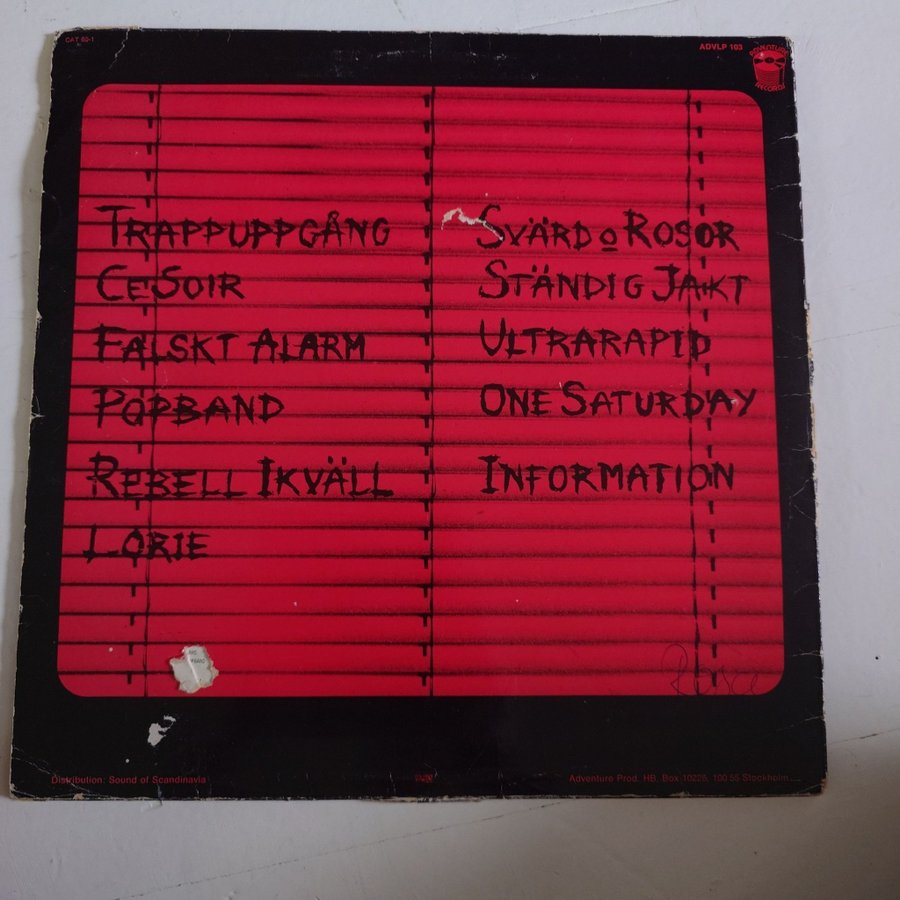 CAT 60-1
ADVLP 103
ADVENTURE
RECORDS
TRAPPUPPGÅNG
CE SOIR
FALSKT ALARM
POPBAND
REBELL IKVÄLL
LORIE
SVÄRD O ROSOR
STÄNDIG JAKT
ULTRARAPID
ONE SATURDAY
INFORMATION
Distribution: Sound of Scandinavia
Adventure Prod. HB, Box 10226, 100 55 Stockholm